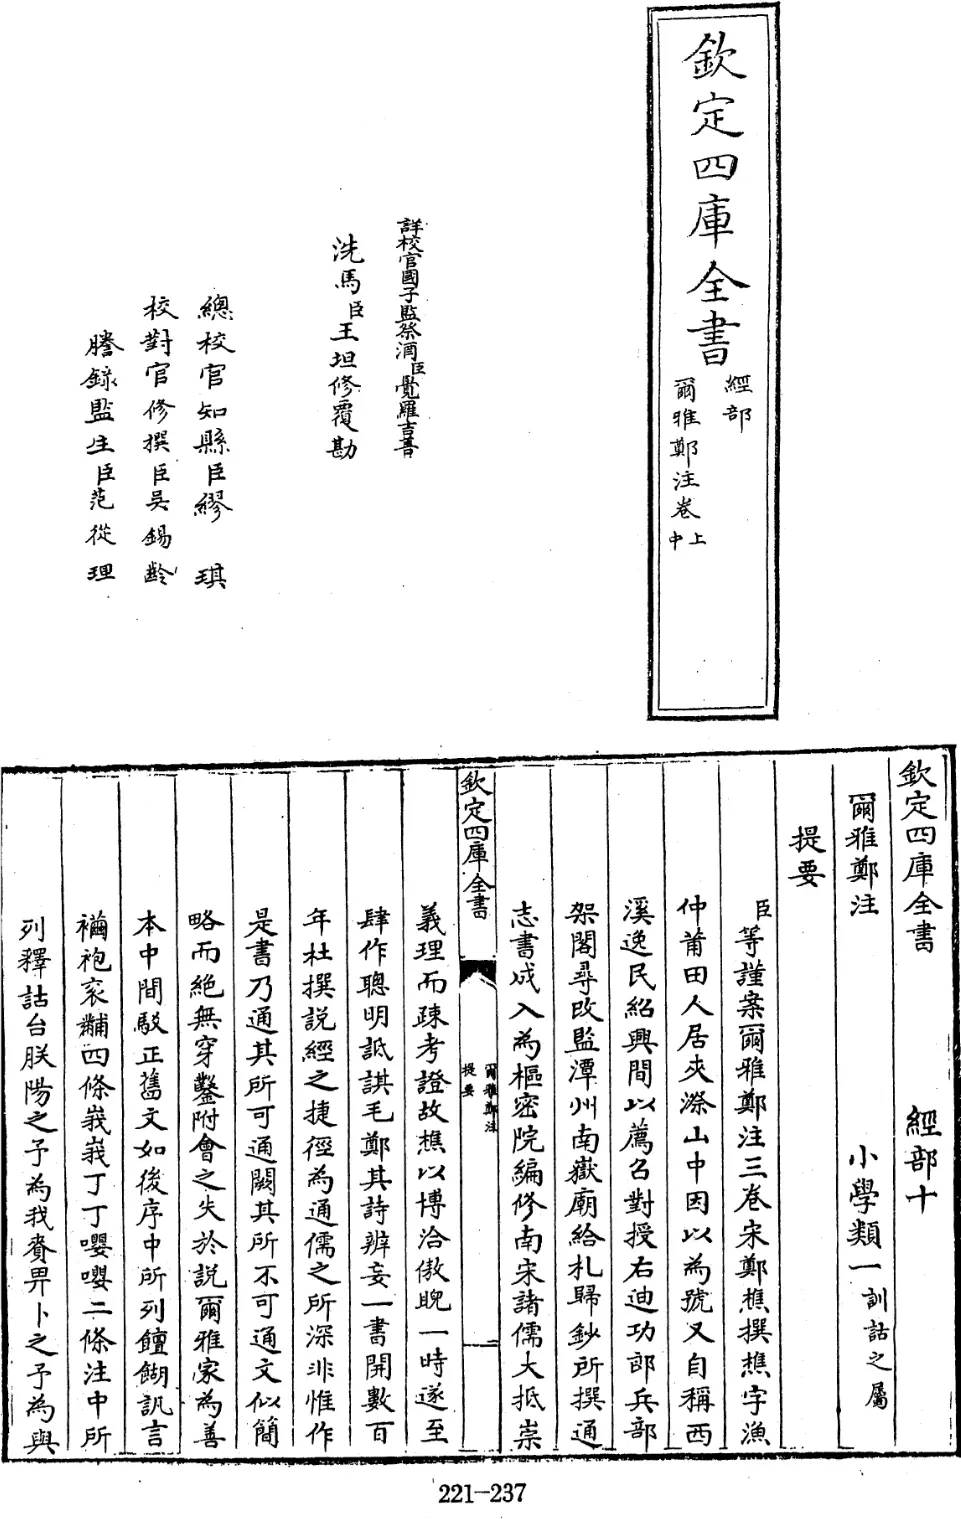 欽定四庫全書
經部
爾雅鄭注卷上中
詳校官國子監祭酒臣覺羅吉善
洗馬臣王坦修覆勘
總校官知縣臣繆琪
校對官修撰臣吳錫齡
謄錄監生臣范從理
欽定四庫全書 經部十
爾雅鄭注 小學類一訓詁之屬
提要
臣等謹案爾雅鄭注三卷宋鄭樵撰樵字漁
仲莆田人居夾漈山中因以為號又自稱西
溪逸民紹興間以薦召對授右迪功郎兵部
架閣尋改監潭州南嶽廟給札歸鈔所撰通
志書成入為樞密院編修南宋諸儒大抵崇
欽定四庫全書
爾雅鄭注
提要
一
義理而疎考證故樵以博洽傲睨一時遂至
肆作聰明詆諆毛鄭其詩辨妄一書開數百
年杜撰說經之捷徑為通儒之所深非惟作
是書乃通其所可通闕其所不可通文似簡
略而絕無穿鑿附會之失於說爾雅家為善
本中間駁正舊文如後序中所列饘餬訊言
襺袍袞黼四條峩峩丁丁嚶嚶二條注中所
列釋詁台朕陽之予為我賚畀卜之予為與
221-237